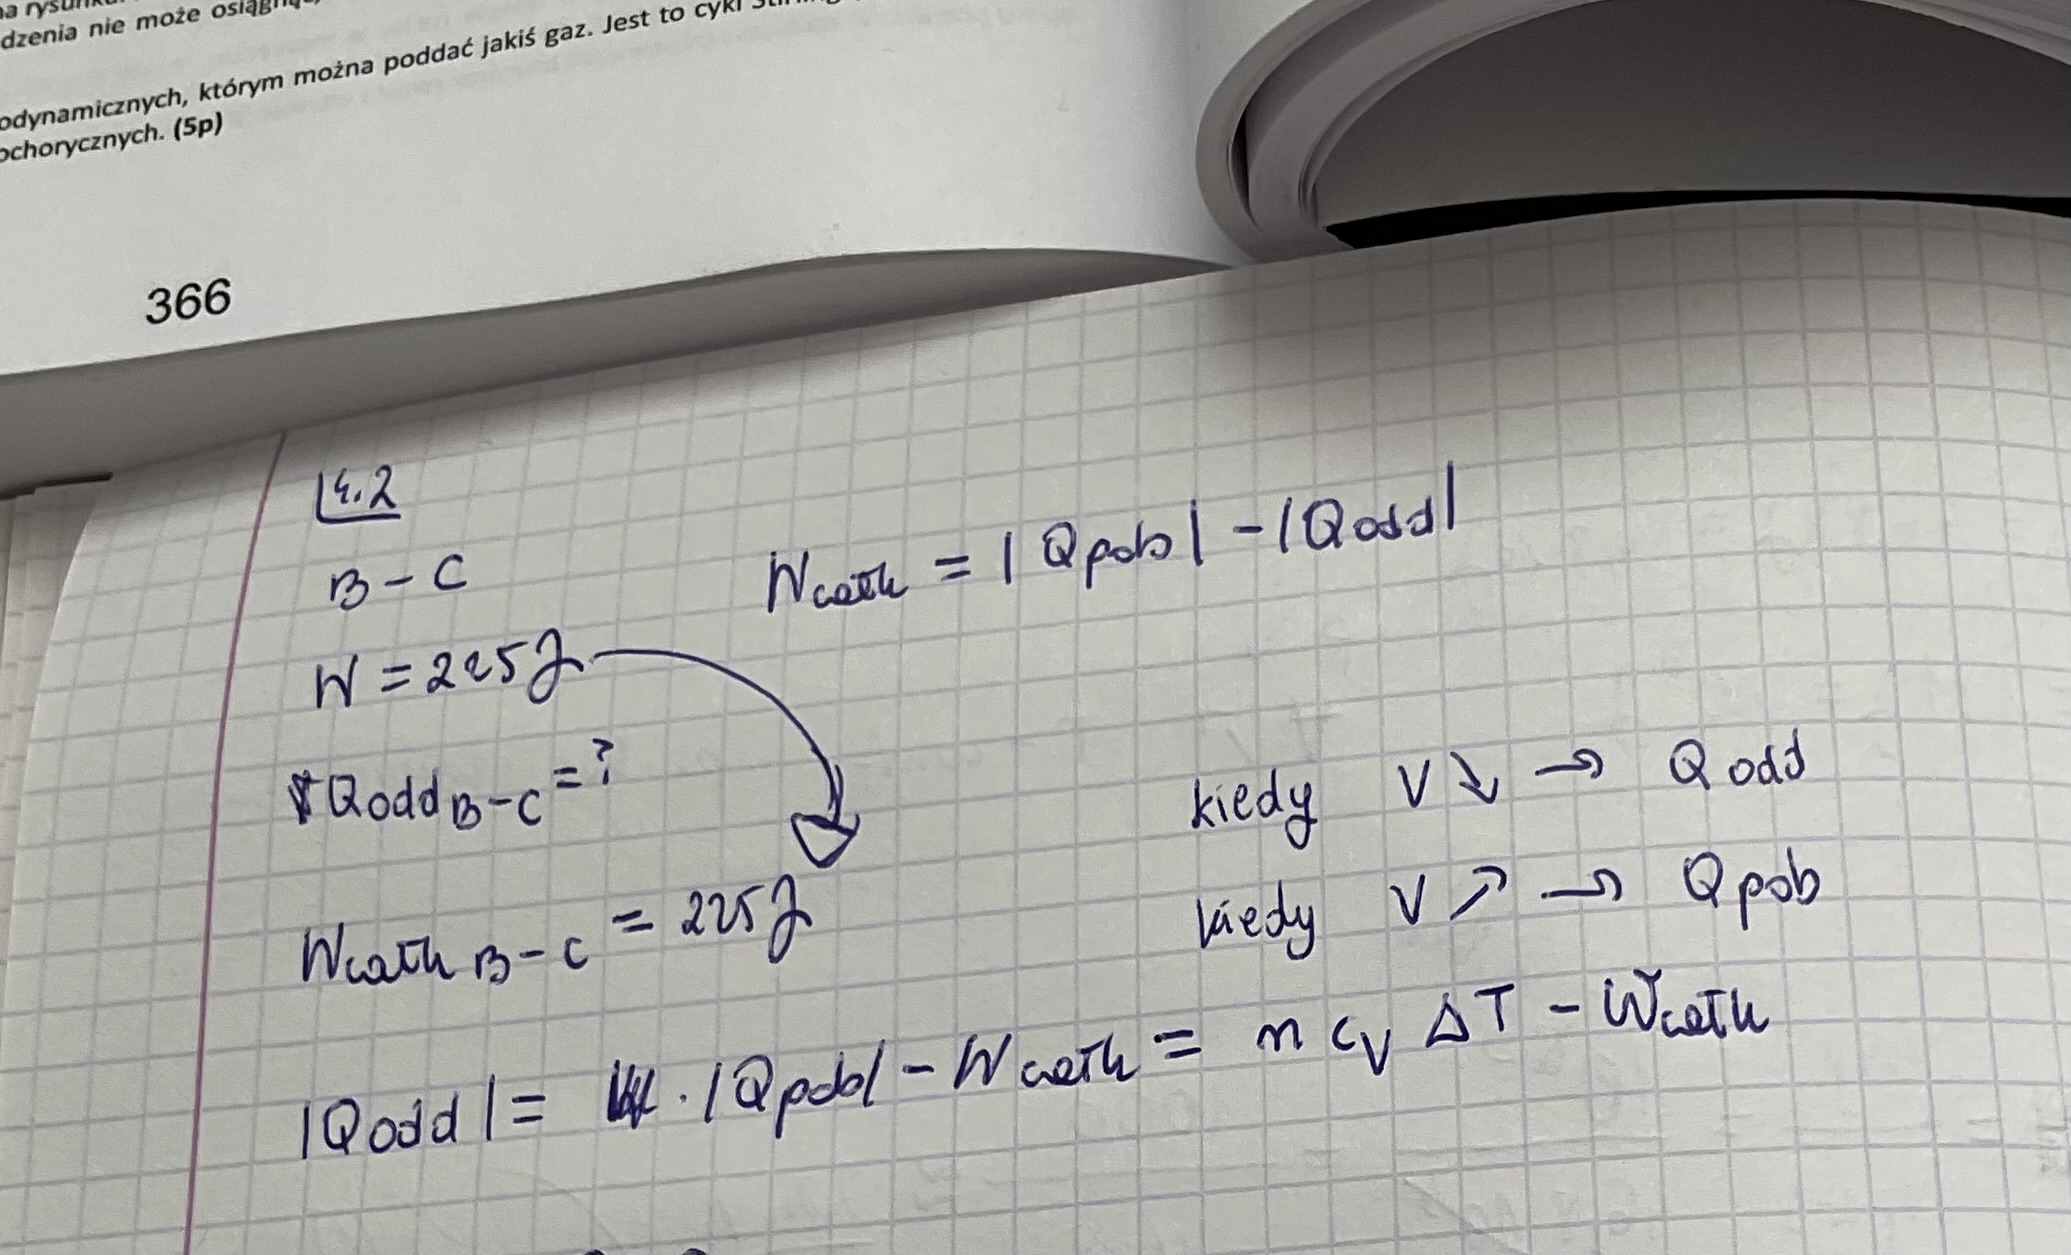 na rysunku
dzenia nie może osiągnąć,
odynamicznych, którym można poddać jakiś gaz. Jest to cykl
ochorycznych. (5p)
366
4.2
B - C
W całk = |Q pob| - |Q odd|
W = 225 J
Q odd B-C = ?
kiedy V ↘ → Q odd
W całk B-C = 225 J
kiedy V ↗ → Q pob
|Q odd| = |Q pob| - W całk = n cv ΔT - W całk